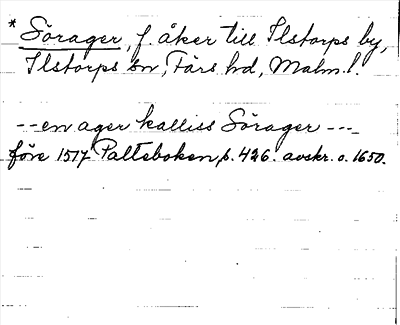 * Sörager, f. åker till Ilstorps by,
Ilstorps sn, Färs hd, Malm. l.
-- en ager kalliss Sörager ---
före 1517 Palteboken, s. 426. avskr. o. 1650.